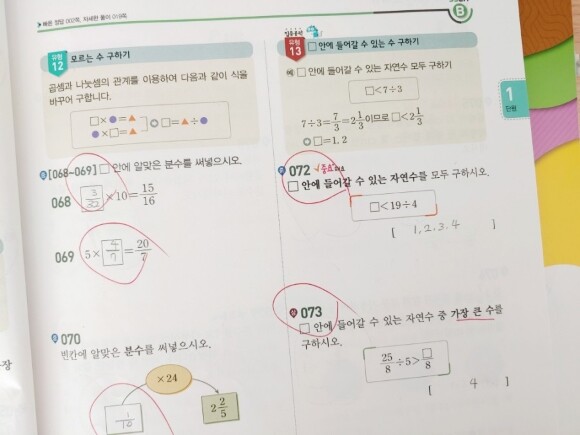 ▸ 빠른 정답 002쪽, 자세한 풀이 019쪽
B
유형 12 모르는 수 구하기
곱셈과 나눗셈의 관계를 이용하여 다음과 같이 식을
바꾸어 구합니다.
□×●=▲
●×□=▲
◎ □=▲÷●
[068~069] □ 안에 알맞은 분수를 써넣으시오.
068 3/32 ×10= 15/16
069 5× 4/7 = 20/7
070
빈칸에 알맞은 분수를 써넣으시오.
×24
1/10
2 2/5
유형 13 □ 안에 들어갈 수 있는 수 구하기
예 □ 안에 들어갈 수 있는 자연수 모두 구하기
□<7÷3
7÷3= 7/3 =2 1/3 이므로 □<2 1/3
◎ □=1, 2
1
단원
072 중요
□ 안에 들어갈 수 있는 자연수를 모두 구하시오.
□<19÷4
[ 1, 2, 3, 4 ]
073
□ 안에 들어갈 수 있는 자연수 중 가장 큰 수를
구하시오.
25/8 ÷5> □/8
[ 4 ]